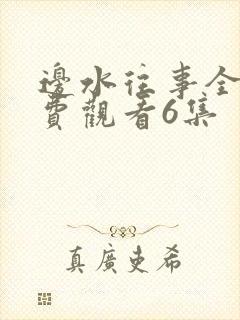 邊水往事全
費觀看6集
真廣史希